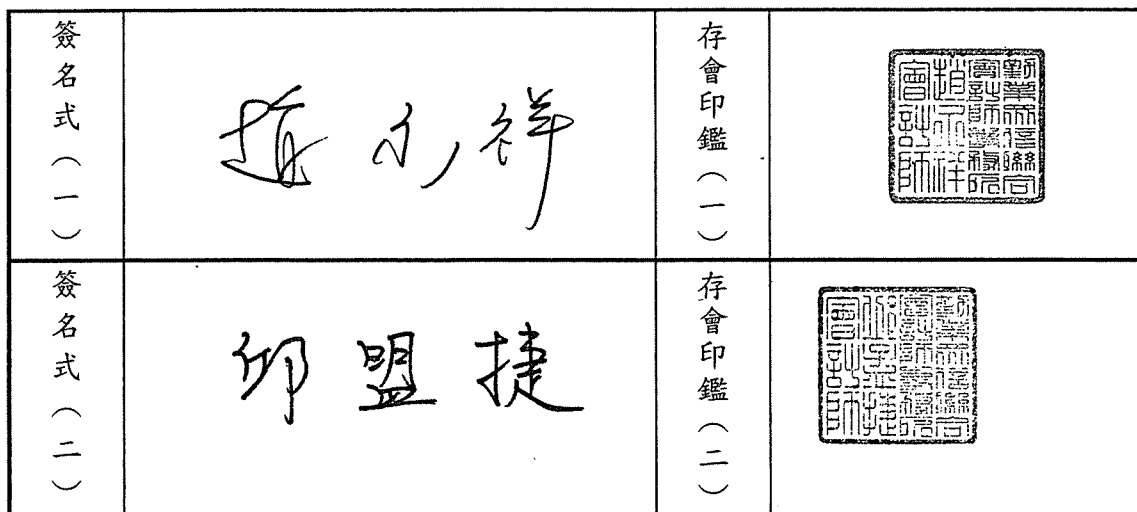 簽名式（一）
趙永祥
存會印鑑（一）
勤業眾信聯合
會計師事務所
趙永祥
會計師
簽名式（二）
邱盟捷
存會印鑑（二）
勤業眾信聯合
會計師事務所
邱盟捷
會計師